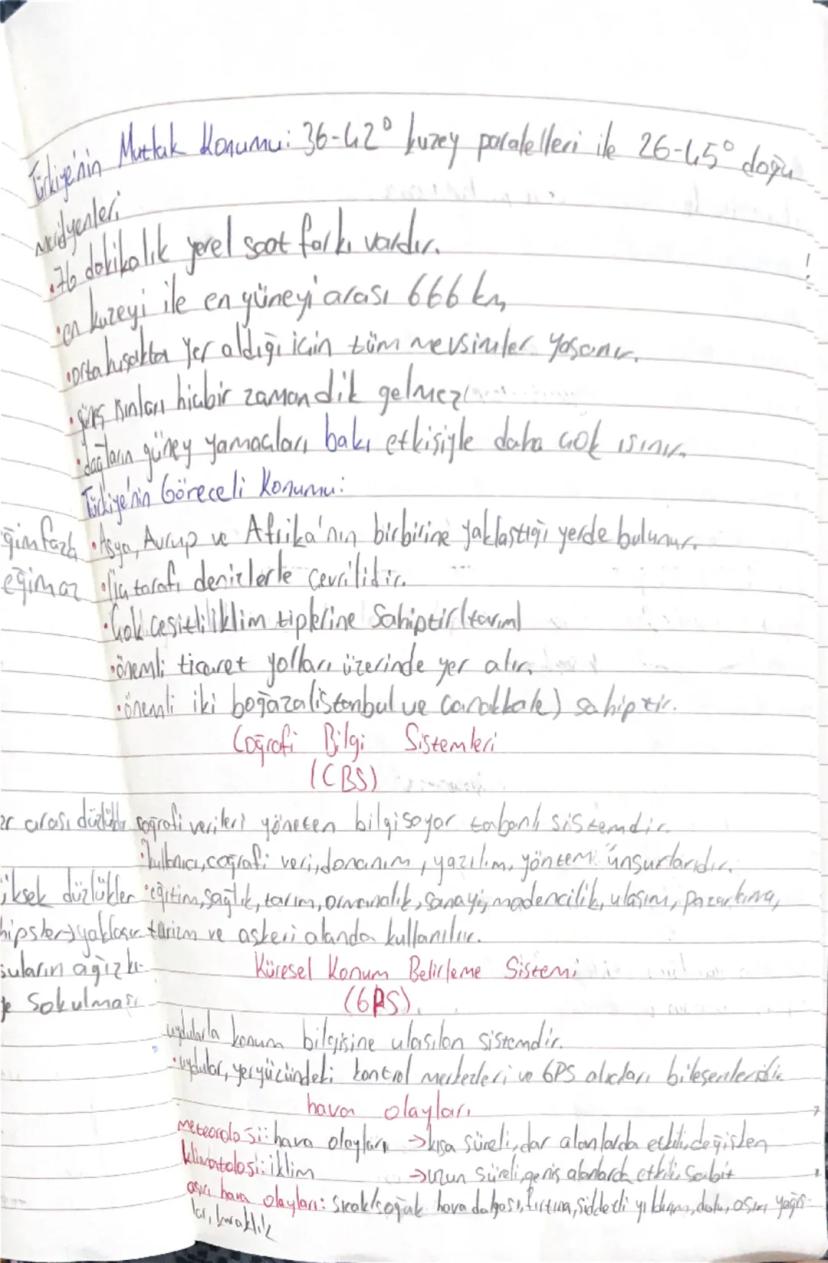 Türkiye'nin Mutlak Konumu: 36-42° kuzey paralelleri ile 26-45° doğu
meridyenleri
• 76 dakikalık yerel saat farkı vardır.
• en kuzeyi ile en güneyi arası 666 km
!
• orta kuşakta yer aldığı için tüm mevsimler yaşanır.
• güneş ışınları hiçbir zaman dik gelmez
• dağların güney yamaçları bakı etkisiyle daha çok ısınır.
Türkiye'nin Göreceli Konumu:
ğim fazla
• Asya, Avrup ve Afrika'nın birbirine yaklaştığı yerde bulunur.
eğim az
• Üç tarafı denizlerle çevrilidir.
• Çok çeşitli iklim tiplerine sahiptir (tarım)
• önemli ticaret yolları üzerinde yer alır.
• önemli iki boğaza (istanbul ve çanakkale) sahiptir.
Coğrafi Bilgi Sistemleri
(CBS)
ar arası düzlükler
coğrafi verileri yöneten bilgisayar tabanlı sistemdir.
• kullanıcı, coğrafi veri, donanım, yazılım, yöntem unsurlarıdır.
üksek düzlükler
• eğitim, sağlık, tarım, ormancılık, sanayi, madencilik, ulaşım, pazarlama,
turizm ve askeri alanda kullanılır.
suların ağızla
Küresel Konum Belirleme Sistemi
sokulması
(GPS)
uydularla konum bilgisine ulaşılan sistemdir.
• uydular, yeryüzündeki kontrol merkezleri ve GPS alıcıları bileşenleridir.
hava olayları
meteoroloji: hava olayları → kısa süreli, dar alanlarda etkili, değişken
klimatoloji: iklim → uzun süreli, geniş alanlarda etkili, sabit
aşırı hava olayları: sıcak/soğuk hava dalgası, fırtına, şiddetli yıldırım, dolu, aşırı yağış-
lar, kuraklık